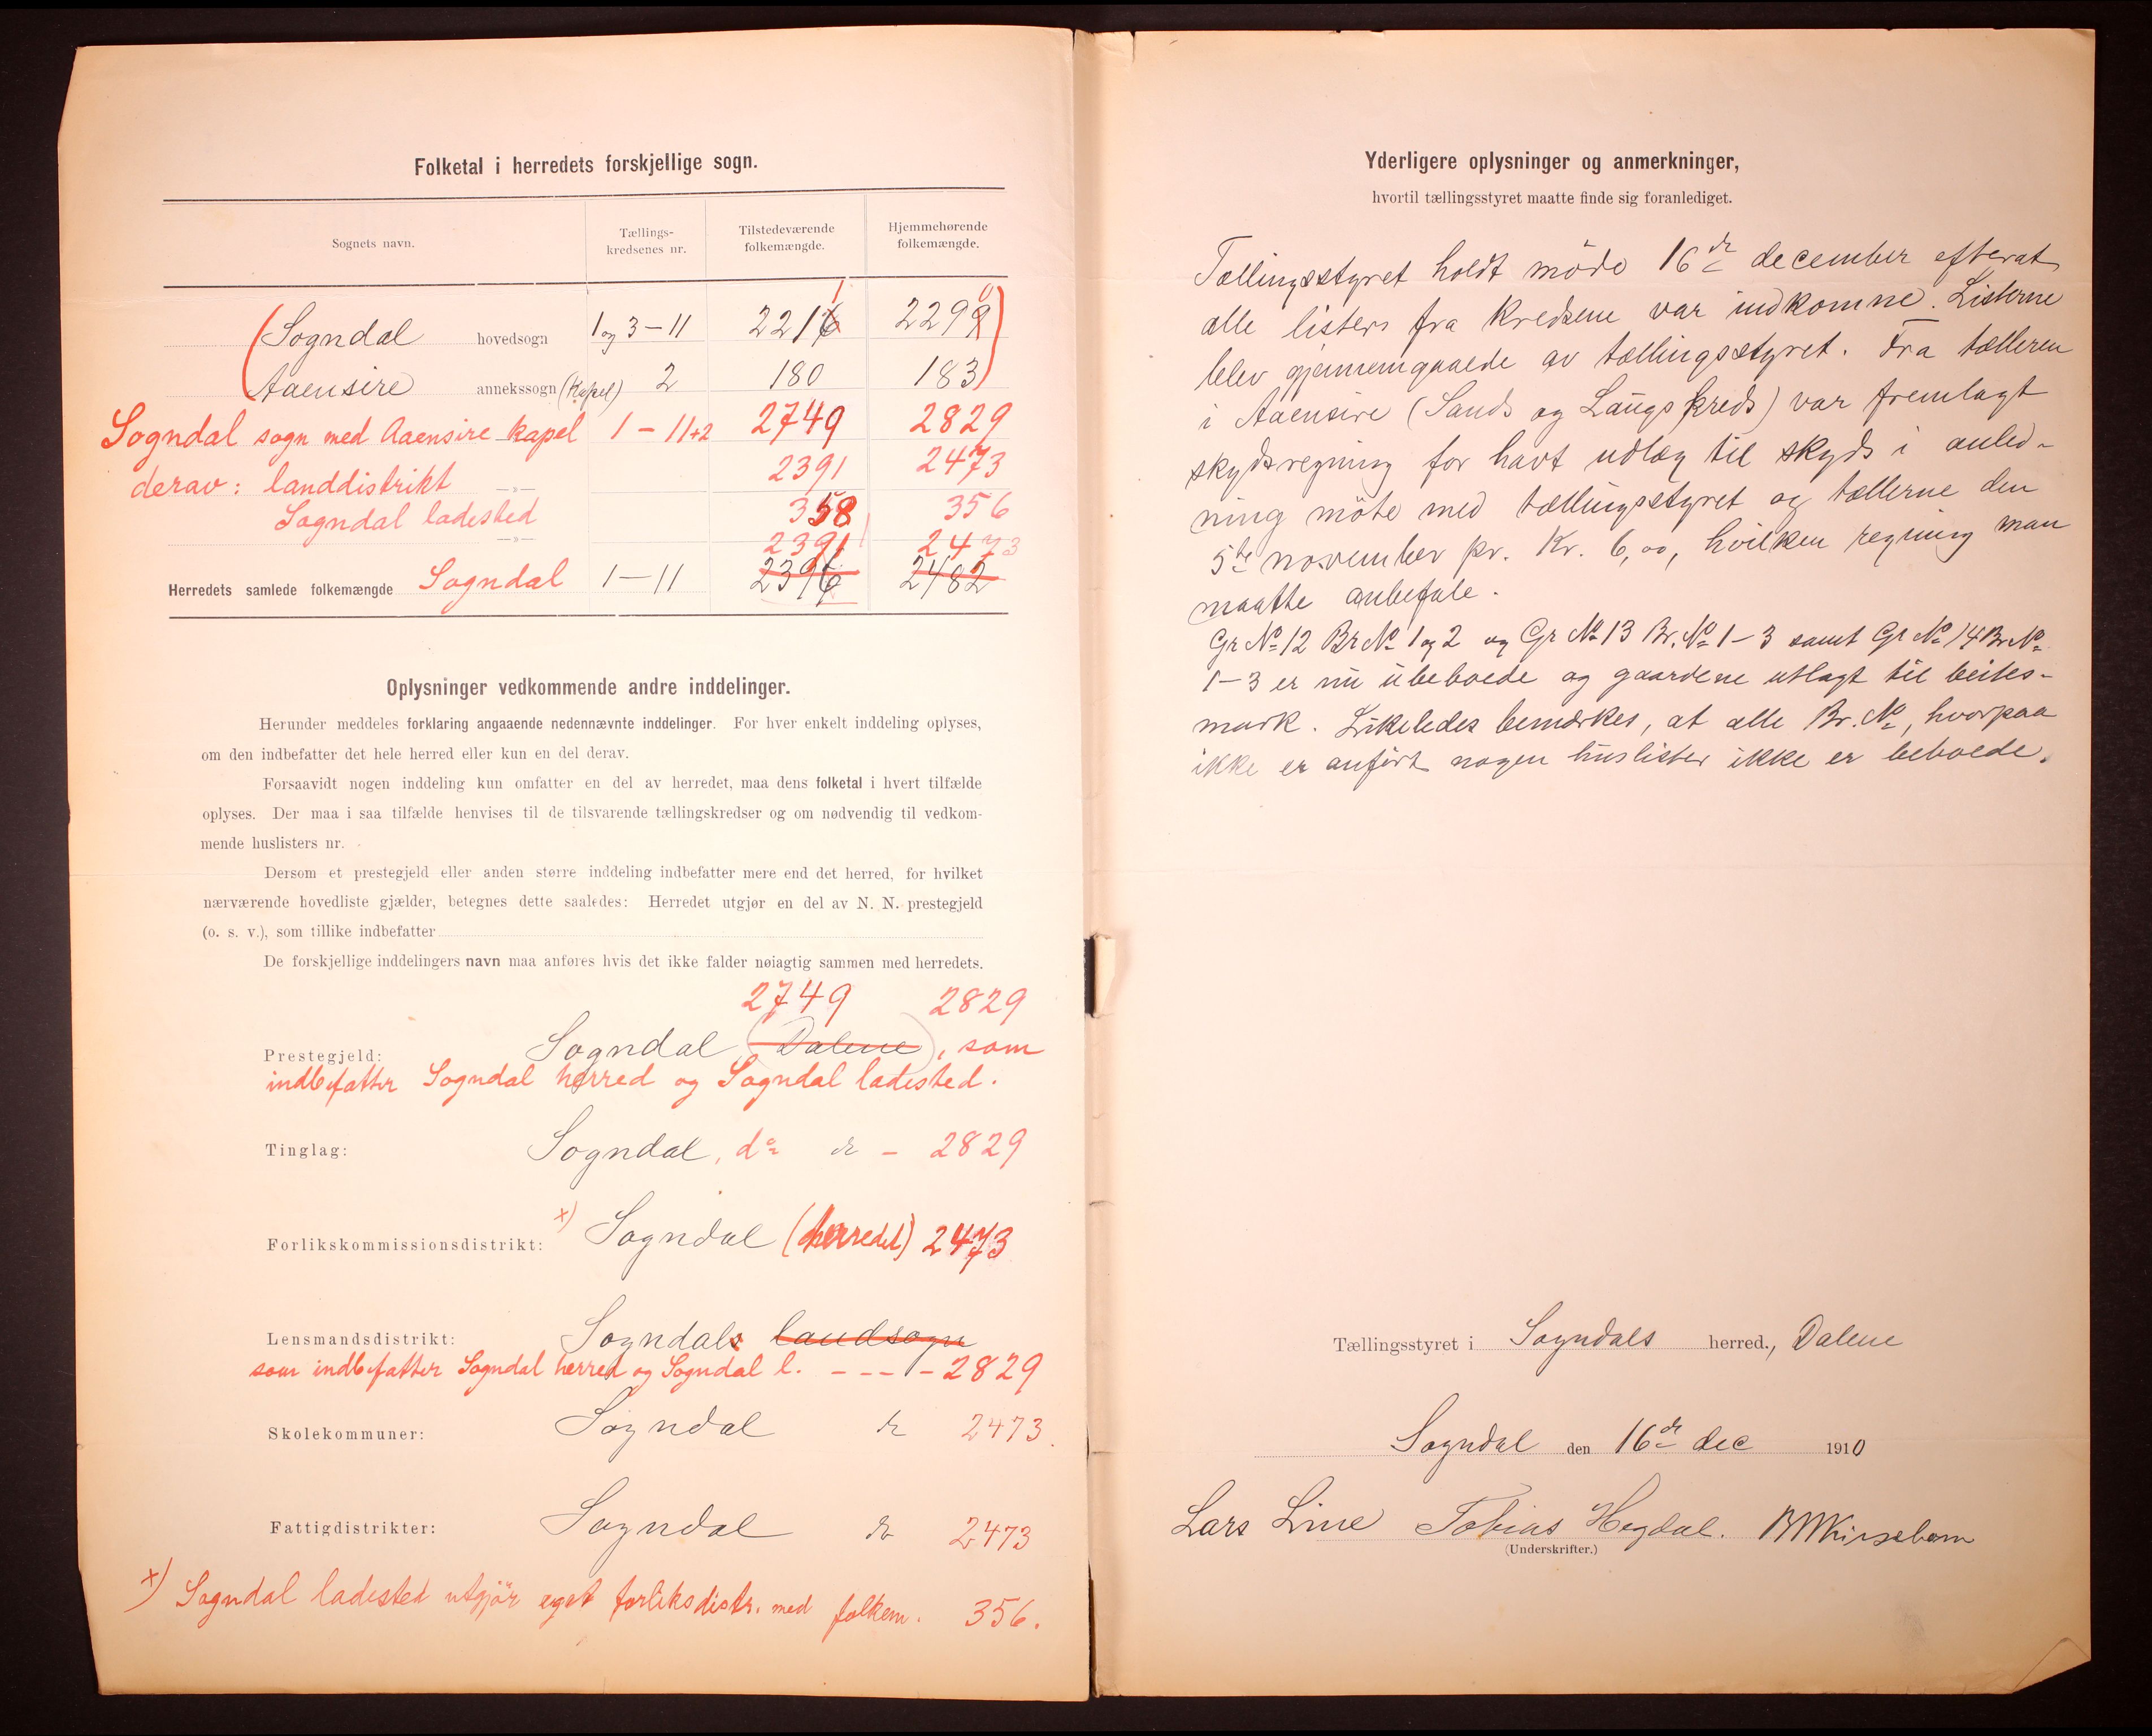 Folketal i herredets forskjellige sogn.
Sognets navn.
Tællings-
kredsenes nr.
Tilstedeværende
folkemængde.
Hjemmehørende
folkemængde.
Sogndal hovedsogn 1 og 3-11 2216 1 2299 0
Aaensire annekssogn (Kapel) 2 180 183
Sogndal sogn med Aaensire kapel 1-11+2 2749 2829
derav: landdistrikt -»- 2391 2473
Sogndal ladested -»- 358 356
2391 2473
Herredets samlede folkemængde Sogndal 1-11 2396 2482
Oplysninger vedkommende andre inddelinger.
Herunder meddeles forklaring angaaende nedennævnte inddelinger. For hver enkelt inddeling oplyses,
om den indbefatter det hele herred eller kun en del derav.
Forsaavidt nogen inddeling kun omfatter en del av herredet, maa dens folketal i hvert tilfælde
oplyses. Der maa i saa tilfælde henvises til de tilsvarende tællingskredser og om nødvendig til vedkom-
mende huslisters nr.
Dersom et prestegjeld eller anden større inddeling indbefatter mere end det herred, for hvilket
nærværende hovedliste gjælder, betegnes dette saaledes: Herredet utgjør en del av N. N. prestegjeld
(o. s. v.), som tillike indbefatter
De forskjellige inddelingers navn maa anføres hvis det ikke falder nøiagtig sammen med herredets.
2749 2829
Prestegjeld: Sogndal (Dalene), som
indbefatter Sogndal herred og Sogndal ladested.
Tinglag: Sogndal, do - 2829
Forlikskommissionsdistrikt: x) Sogndal (herredet) 2473
Lensmandsdistrikt: Sogndals landsogn
som indbefatter Sogndal herred og Sogndal l. - - - - 2829
Skolekommuner: Sogndal 2473.
Fattigdistrikter: Sogndal 2473
x) Sogndal ladested utgjør eget forliksdistr. med folkem. 356.
Yderligere oplysninger og anmerkninger,
hvortil tællingsstyret maatte finde sig foranlediget.
Tællingsstyret holdt møde 16de december efterat
alle listers fra kredsene var indkomne. Listerne
blev gjennemgaaede av tællingsstyret. Fra tælleren
i Aaensire (Sands og Laugs kreds) var fremlagt
skydsregning for havt udlæg til skyds i anled-
ning møte med tællingsstyret og tællerne den
5te november pr. Kr. 6,00, hvilken regning man
maatte anbefale.
Gr No 12 Br No 1 og 2 og Gr No 13 Br. No 1-3 samt Gr No 14 Br No
1-3 er nu ubeboede og gaardene utlagt til beites-
mark. Likeledes bemærkes, at alle Br. No, hvorpaa
ikke er anført nogen huslister ikke er beboede.
Tællingsstyret i Sogndals herred., Dalene
Sogndal den 16de dec 1910
Lars Line Tobias Hegdal.
(Underskrifter.)